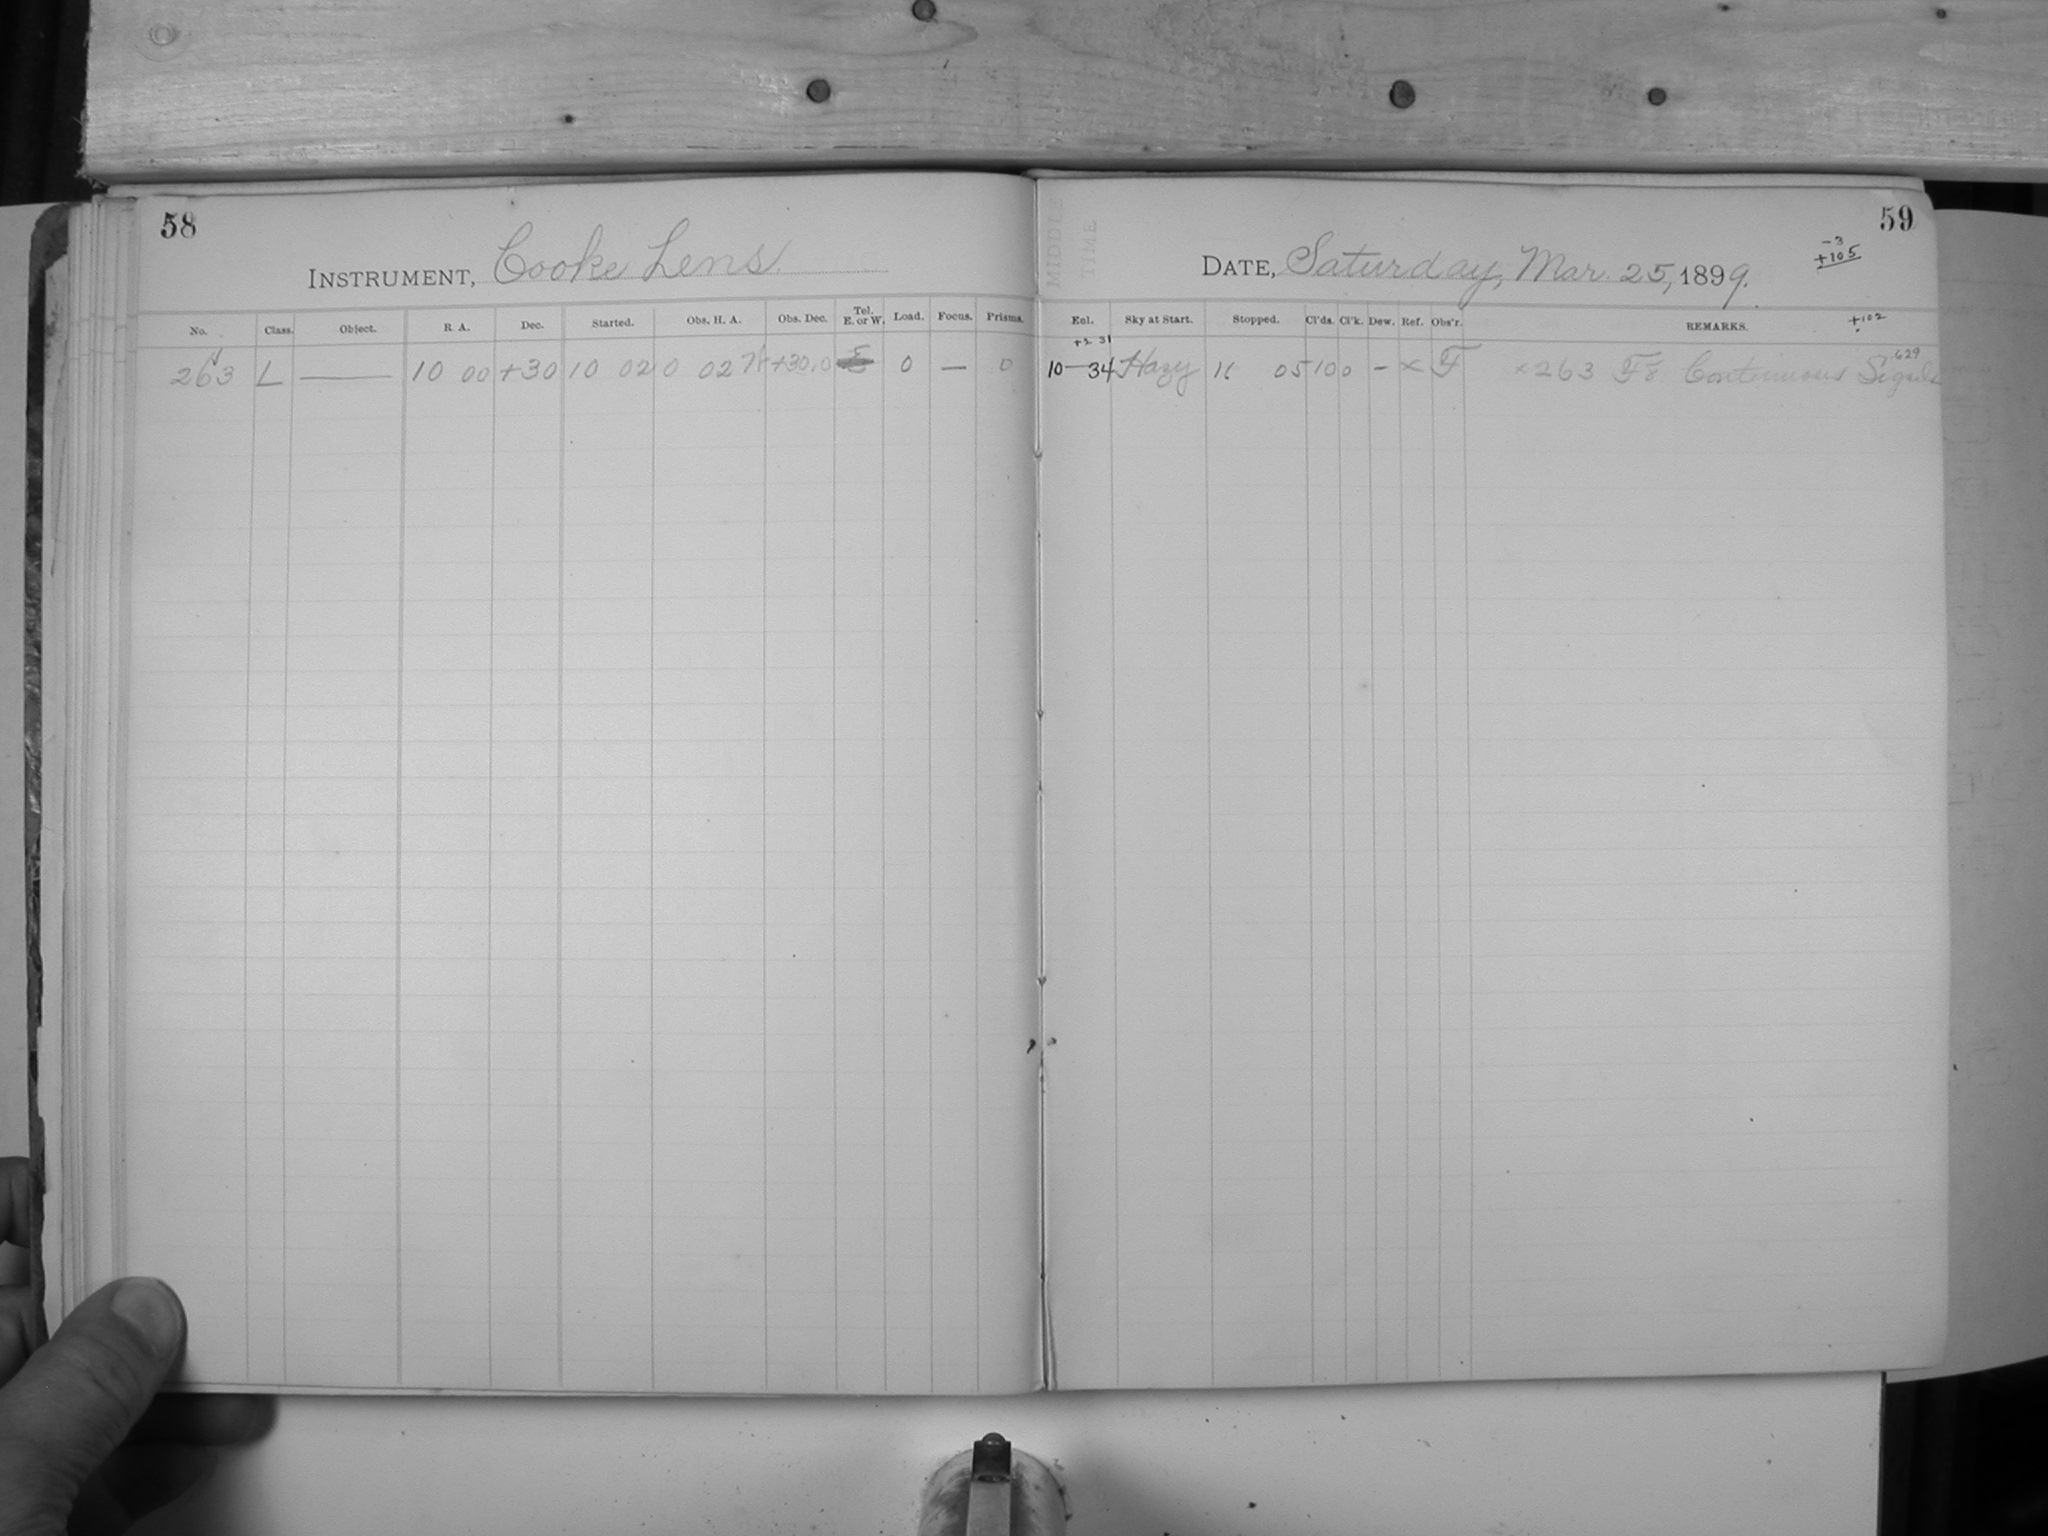 58
INSTRUMENT, Cooke Lens.
No. Class. Object. R A. Dec. Started. Obs. H. A. Obs. Dec. Tel. E. or W. Load. Focus. Prisms.
263 L — 10 00 +30 10 02 0 02 +30.0 E 0 — 0
59
MIDDLE TIME
DATE, Saturday, Mar. 25, 1899.
-3
+105
+102
Enl. Sky at Start. Stopped. Cl'ds. Cl'k. Dew. Ref. Obs'r. REMARKS.
+2 31
629
10-34 Hazy 11 05 10 0 – × F ×263 Continuous Signals